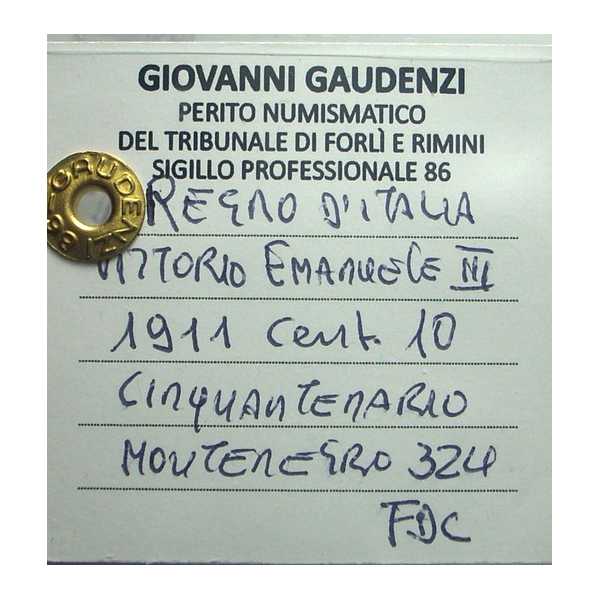 GIOVANNI GAUDENZI
PERITO NUMISMATICO
DEL TRIBUNALE DI FORLÌ E RIMINI
SIGILLO PROFESSIONALE 86
GAUDENZI 86
REGNO D'ITALIA
VITTORIO EMANUELE III
1911 Cent. 10
CINQUANTENARIO
MONTENEGRO 324
FDC